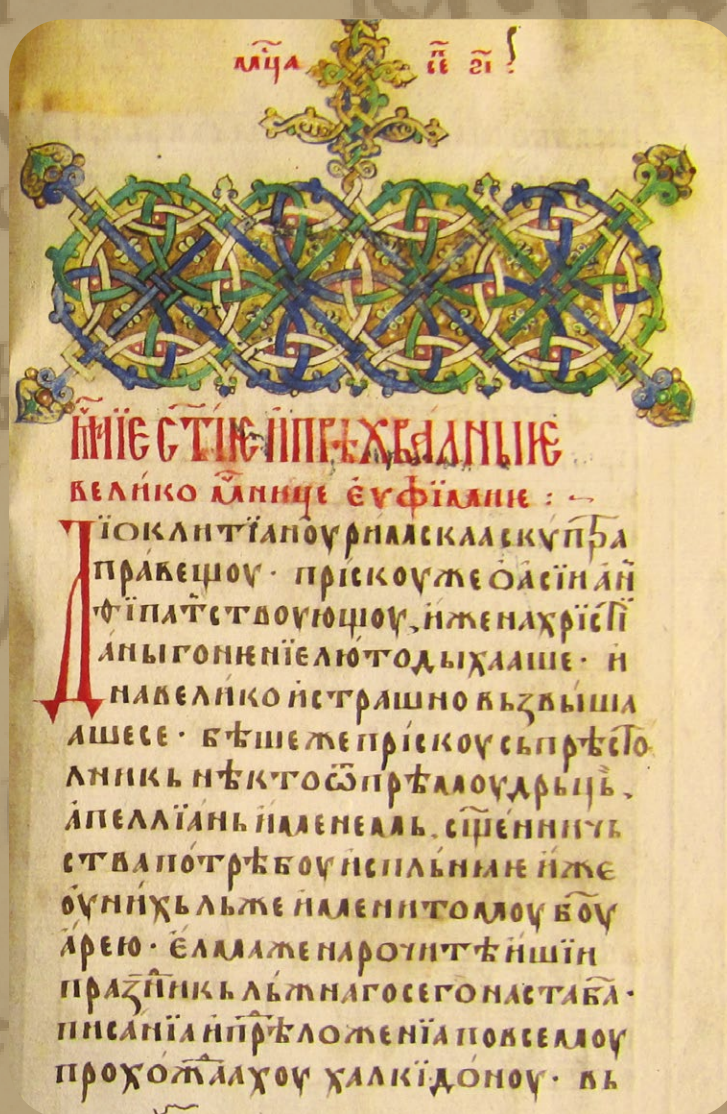 мц҃а се҇п ѕ҃і
мч҃нїе ст҃їе и прѣхвалныѥ
велико мч҃нице еѵфїмиѥ :~
Дїоклитїаноу римласкаа скѵптра
правещоу · прїскоу же ѳасїи ан
ѳїпатствоующоу, иже на хрїстї
аны гонѥнїе люто дыхааше · и
на велико и страшно възвыша
аше се · бѣше же прїскоу съпрѣсто
лникь нѣкто ѿ прѣмоудрьць,
апеллїань именемь, сщ҃енничь
ства потрѣбоу исплънѥѥ иже
оу нихь лъже именитомоу бо҃у
арею · ѥлма же нарочитѣишїи
праздникь лъжнаго сего наста ба҃ ·
писанїа и прѣложенїа по всемоу
прохождаахоу халкїдоноу · вь